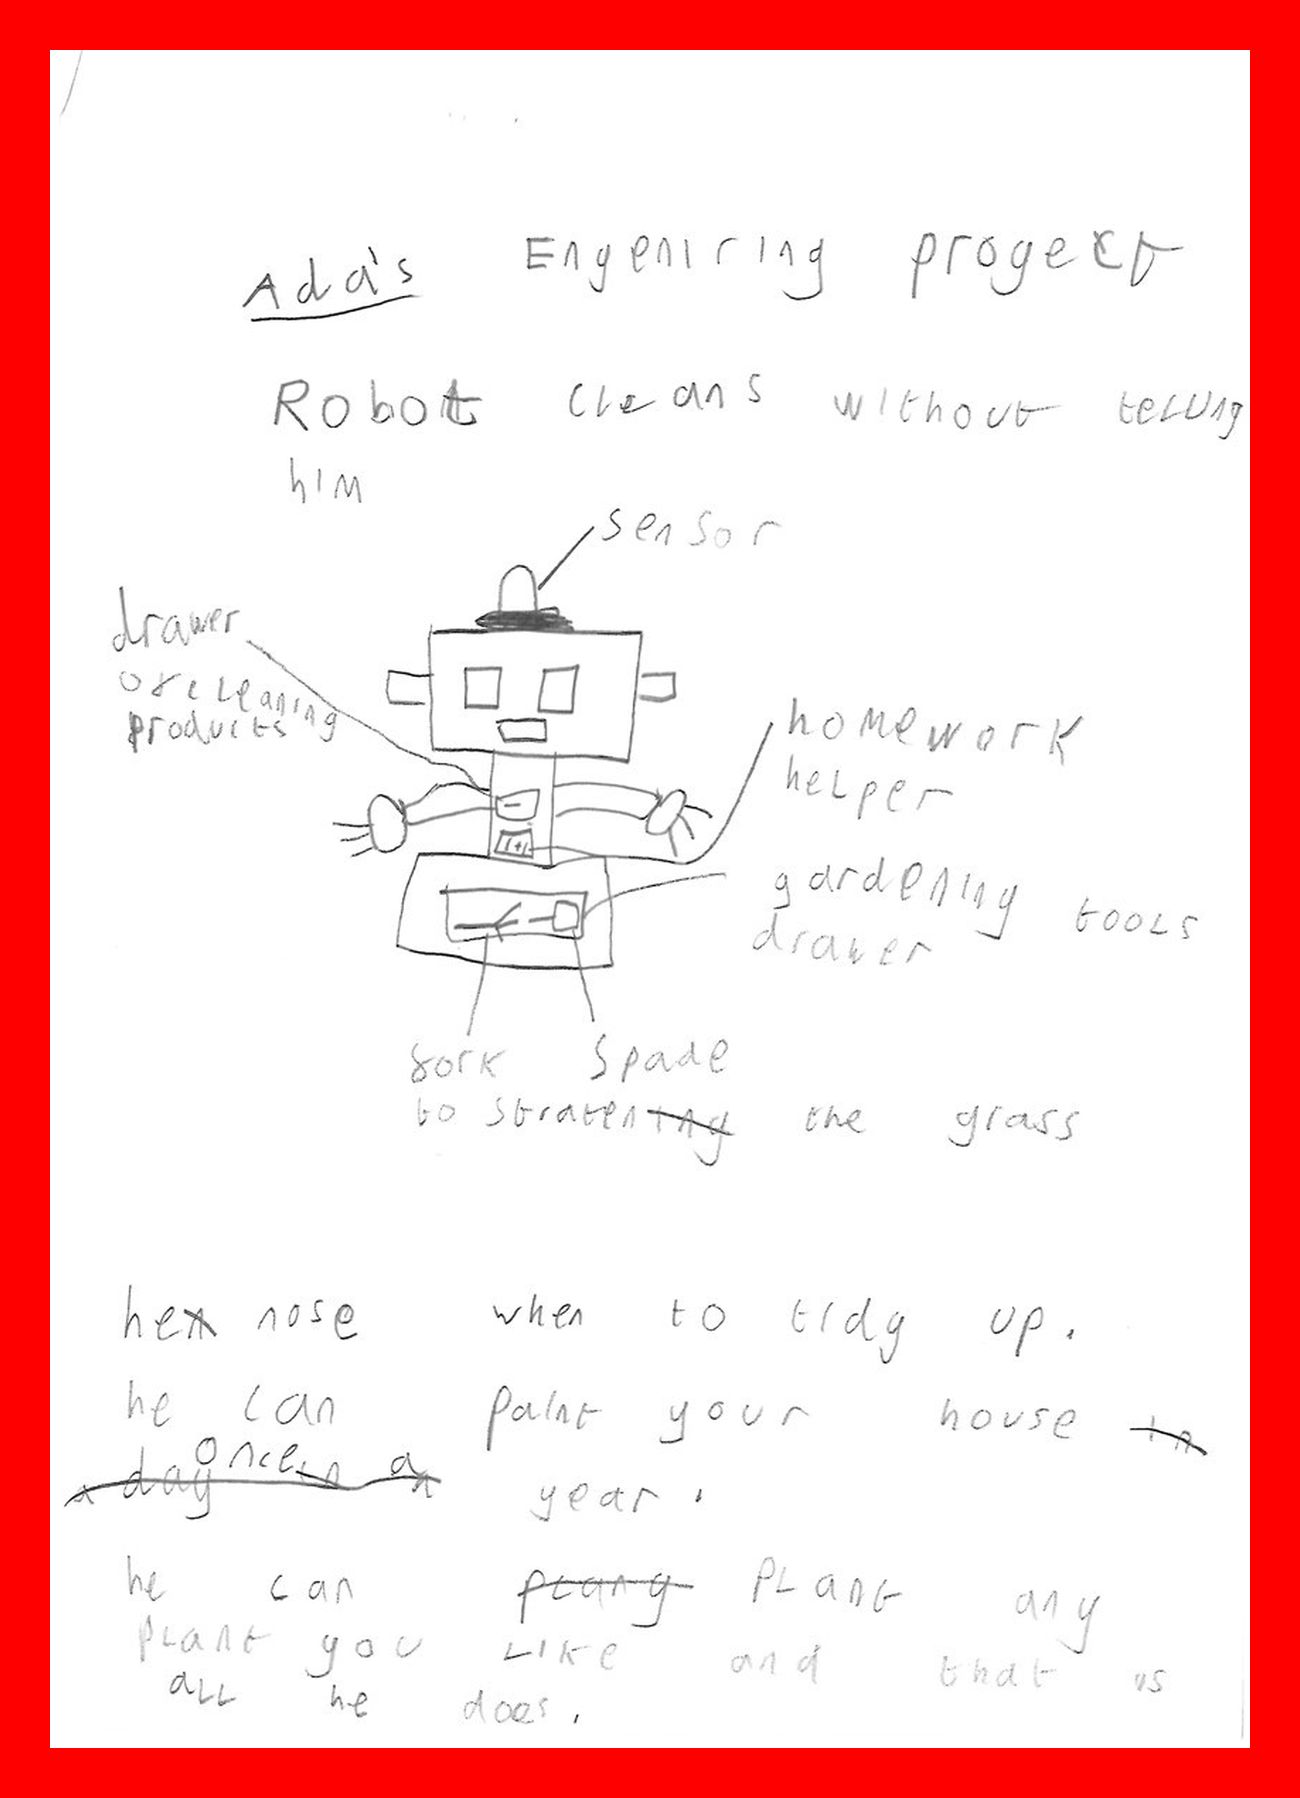 Ada's Engeniring progect
Robot cleans without telling
him
sensor
drawer
of cleaning
products
homework
helper
gardening tools
drawer
fork spade
to stratening the grass
he nose when to tidy up.
he can paint your house in
once in a
a day year.
he can plany plant any
plant you like and that is
all he does.